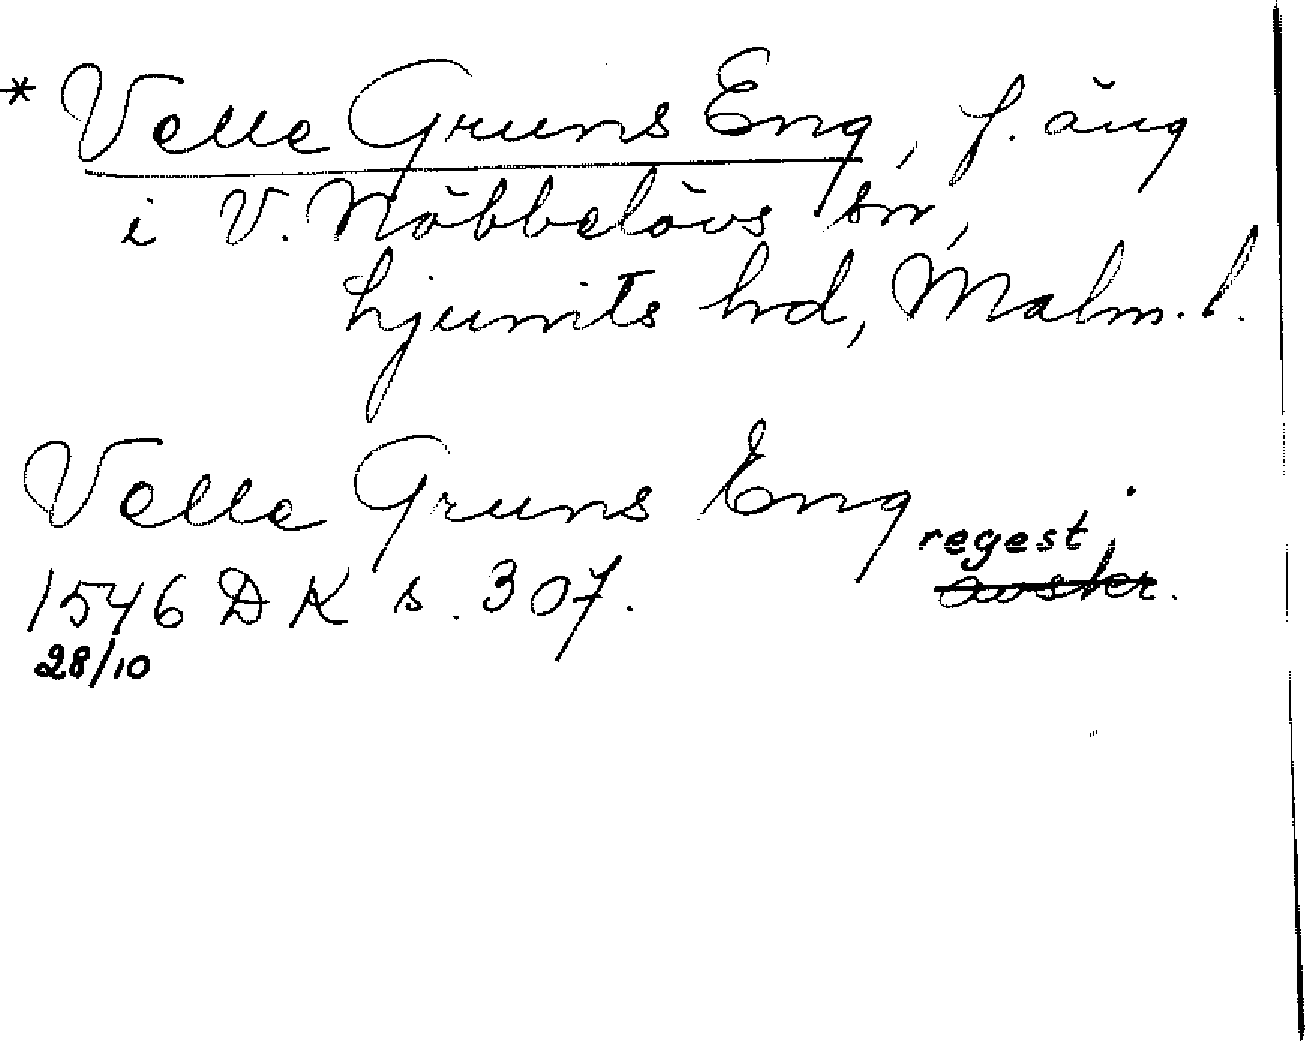 * Velle Gruns Eng, f. äng
i V. Nöbbelövs sn,
Ljunits hd, Malm. l.
Velle Gruns Eng
regest.
avskr.
1546 DK s. 307.
28/10